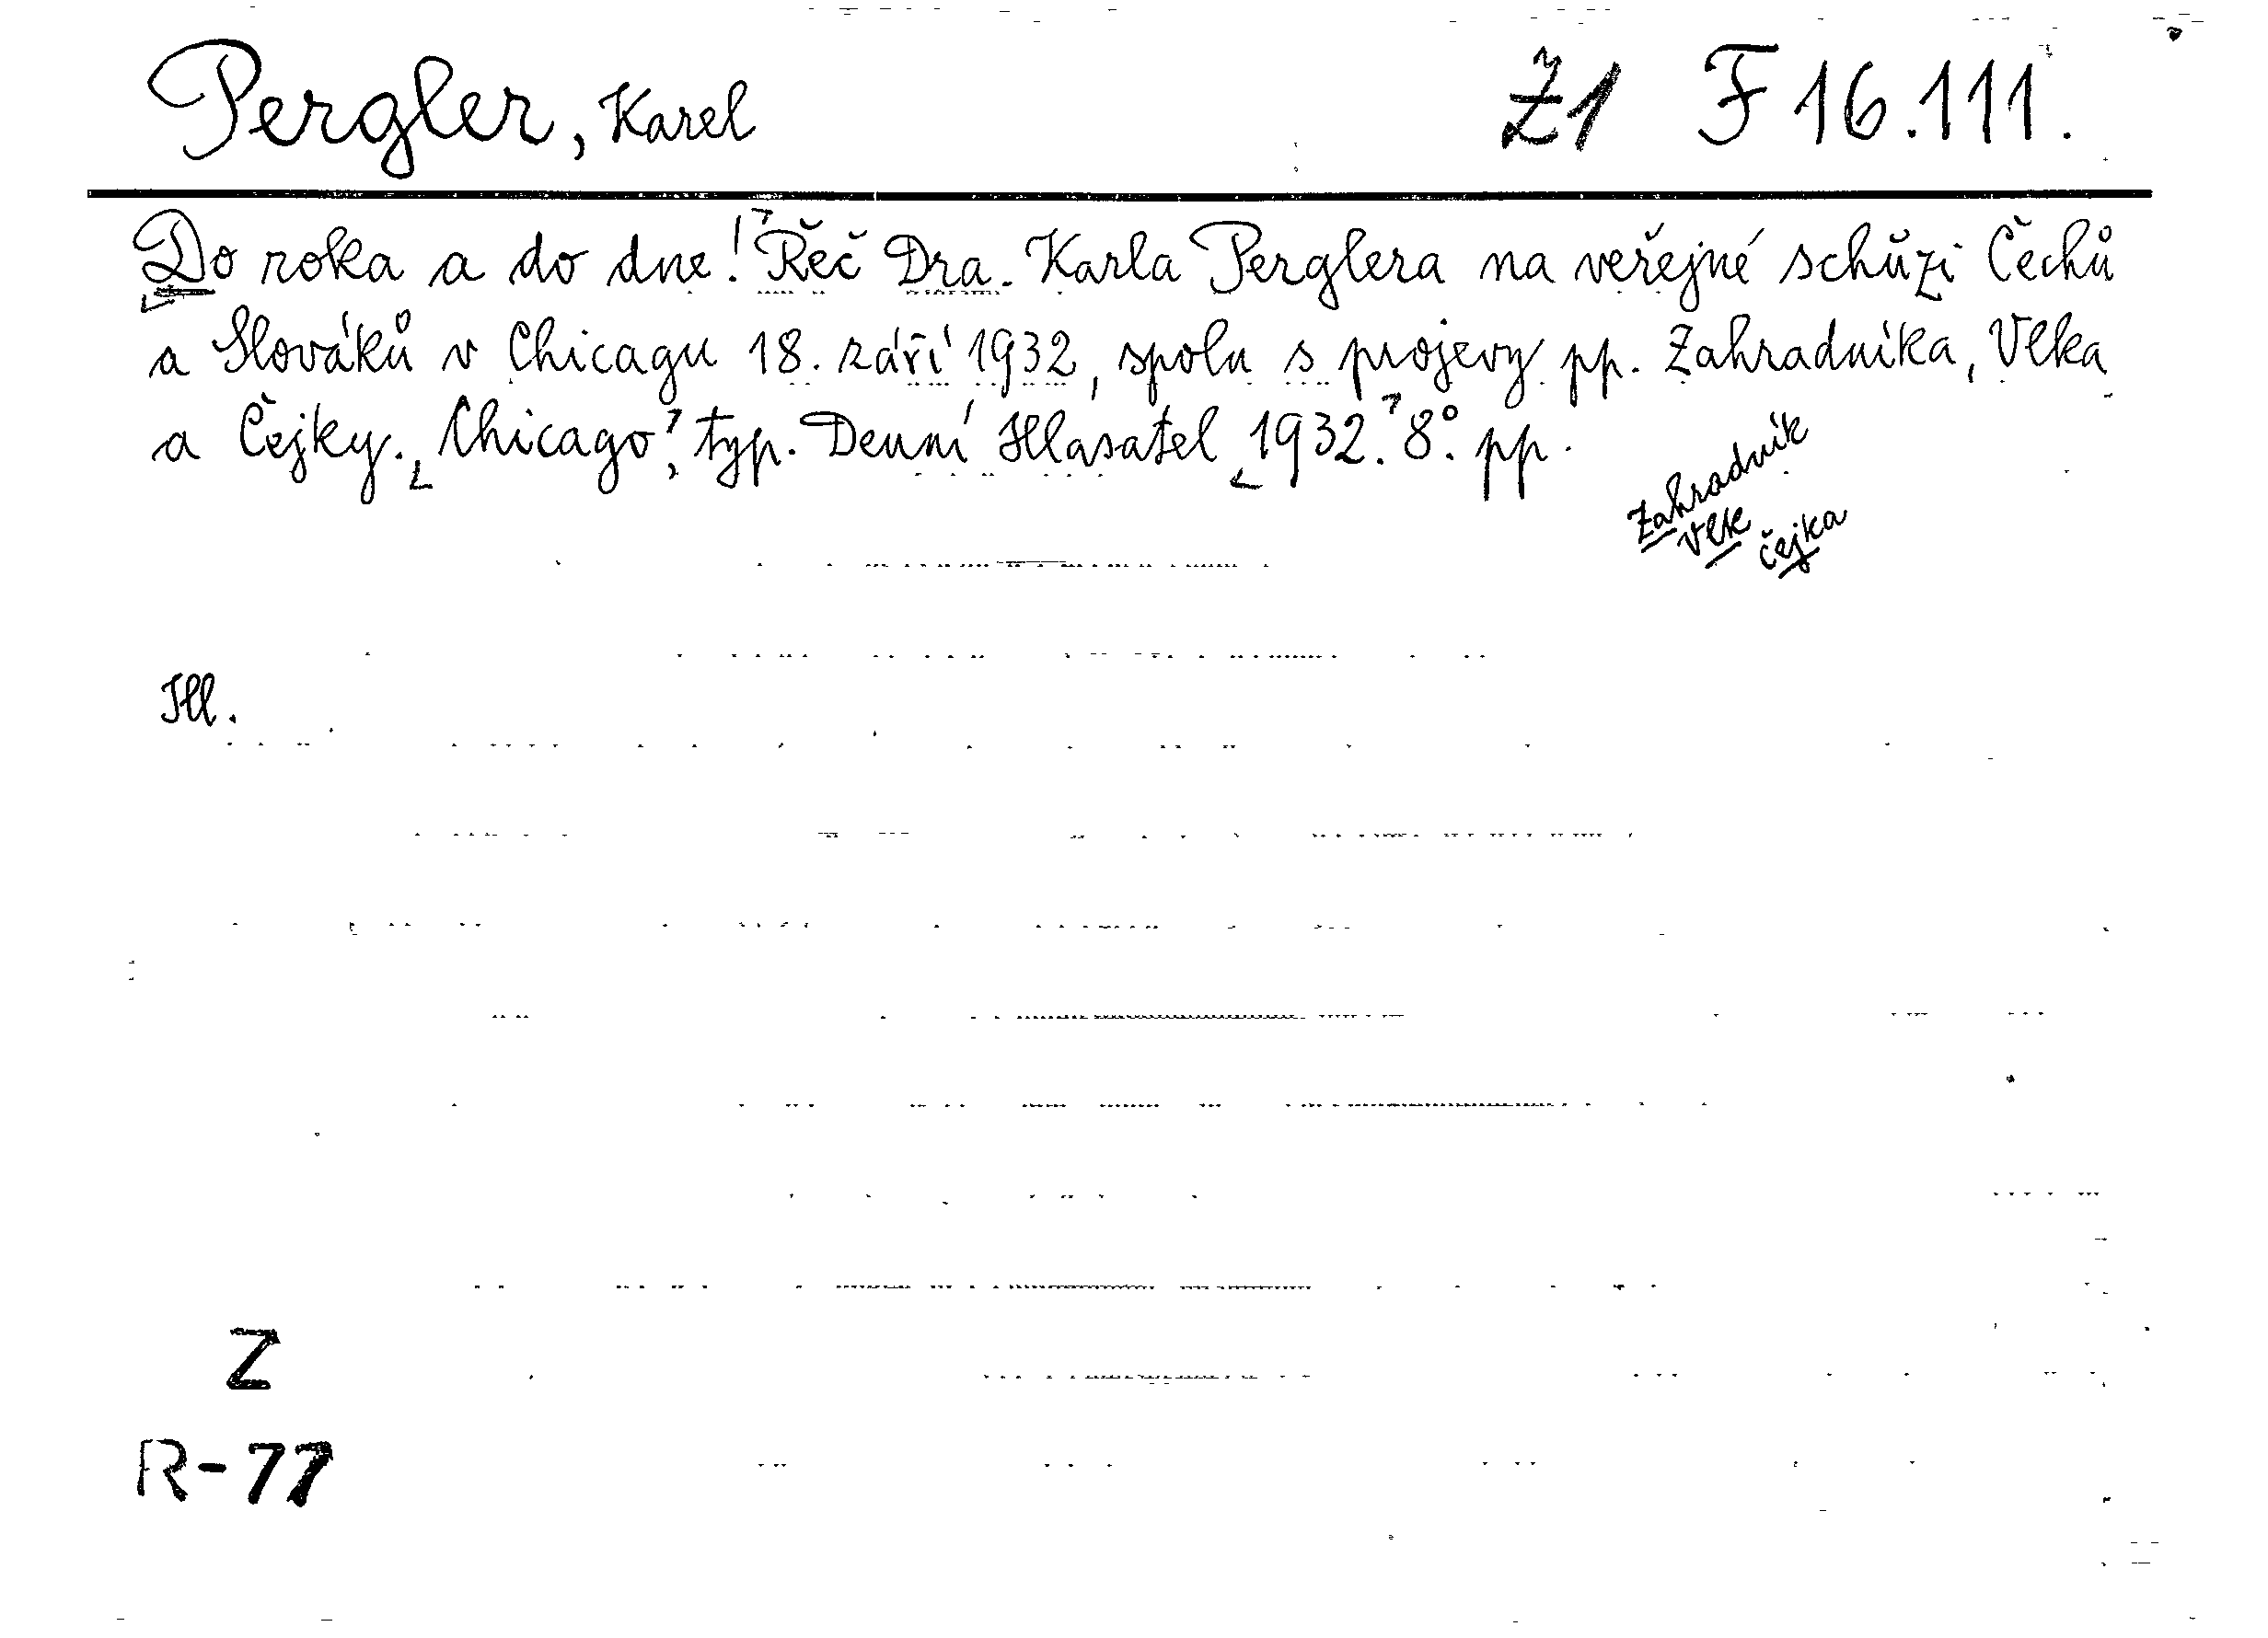 Pergler, Karel Ž1 F 16.111.
Do roka a do dne! Řeč Dra. Karla Perglera na veřejné schůzi Čechů
a Slováků v Chicagu 18. září 1932, spolu s projevy pp. Zahradníka, Vlka
a Čejky. Chicago, typ. Denní Hlasatel 1932. 8°. pp.
Zahradník
Vlk
Čejka
Hl.
Z
R-77